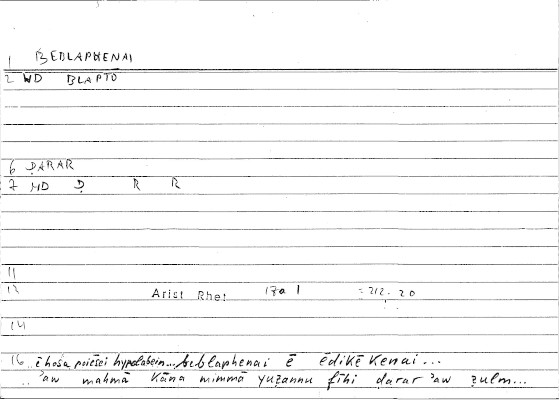 1 BEBLAPHENAI
2 WD BLAPTO
6 ḌARAR
7 WD Ḍ R R
11
13 Arist Rhet 17a 1 = 212. 20
14
16 ..ē hosa poiēsei hypolabein... beblaphenai ē ēdikēkenai...
.. ʾaw mahmā kāna mimmā yuẓannu fīhi ḍarar ʾaw ẓulm...